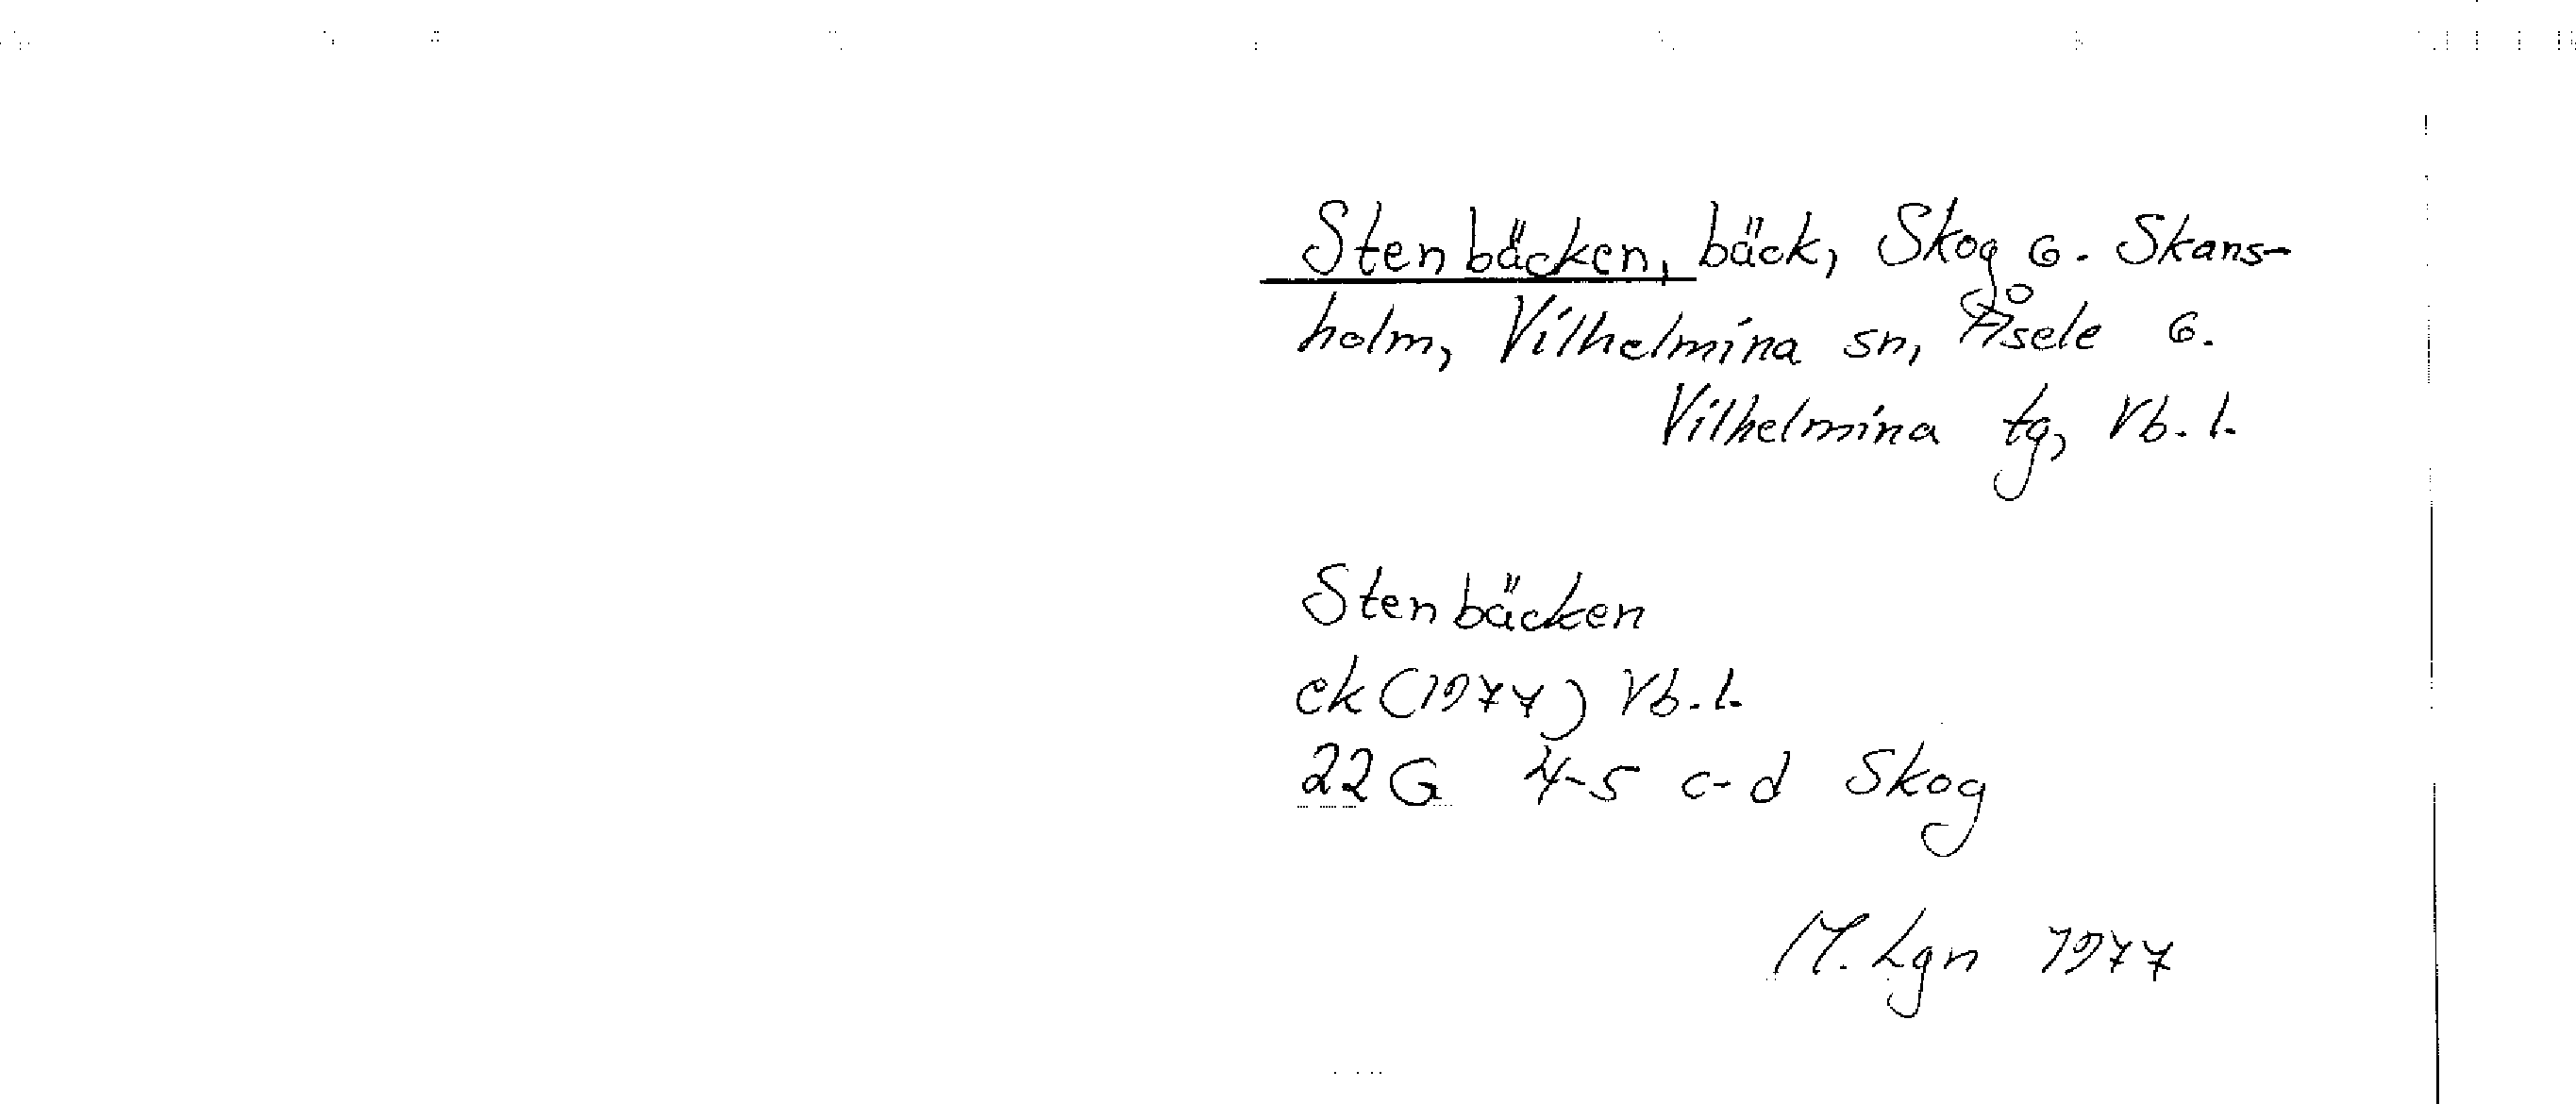 Stenbäcken, bäck, Skog o. Skans-
holm, Vilhelmina sn, Åsele o.
Vilhelmina tg, Vb. l.
Stenbäcken
ek (1977) Vb. l.
22G 4-5 c-d Skog
M. Lgn 1977